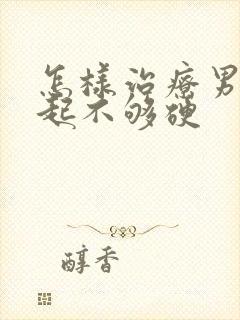 怎样治疗男
起不够硬
醇香